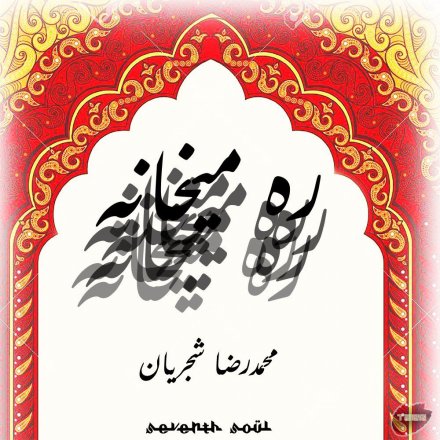 ره میخانه
محمدرضا شجریان
seventh soul